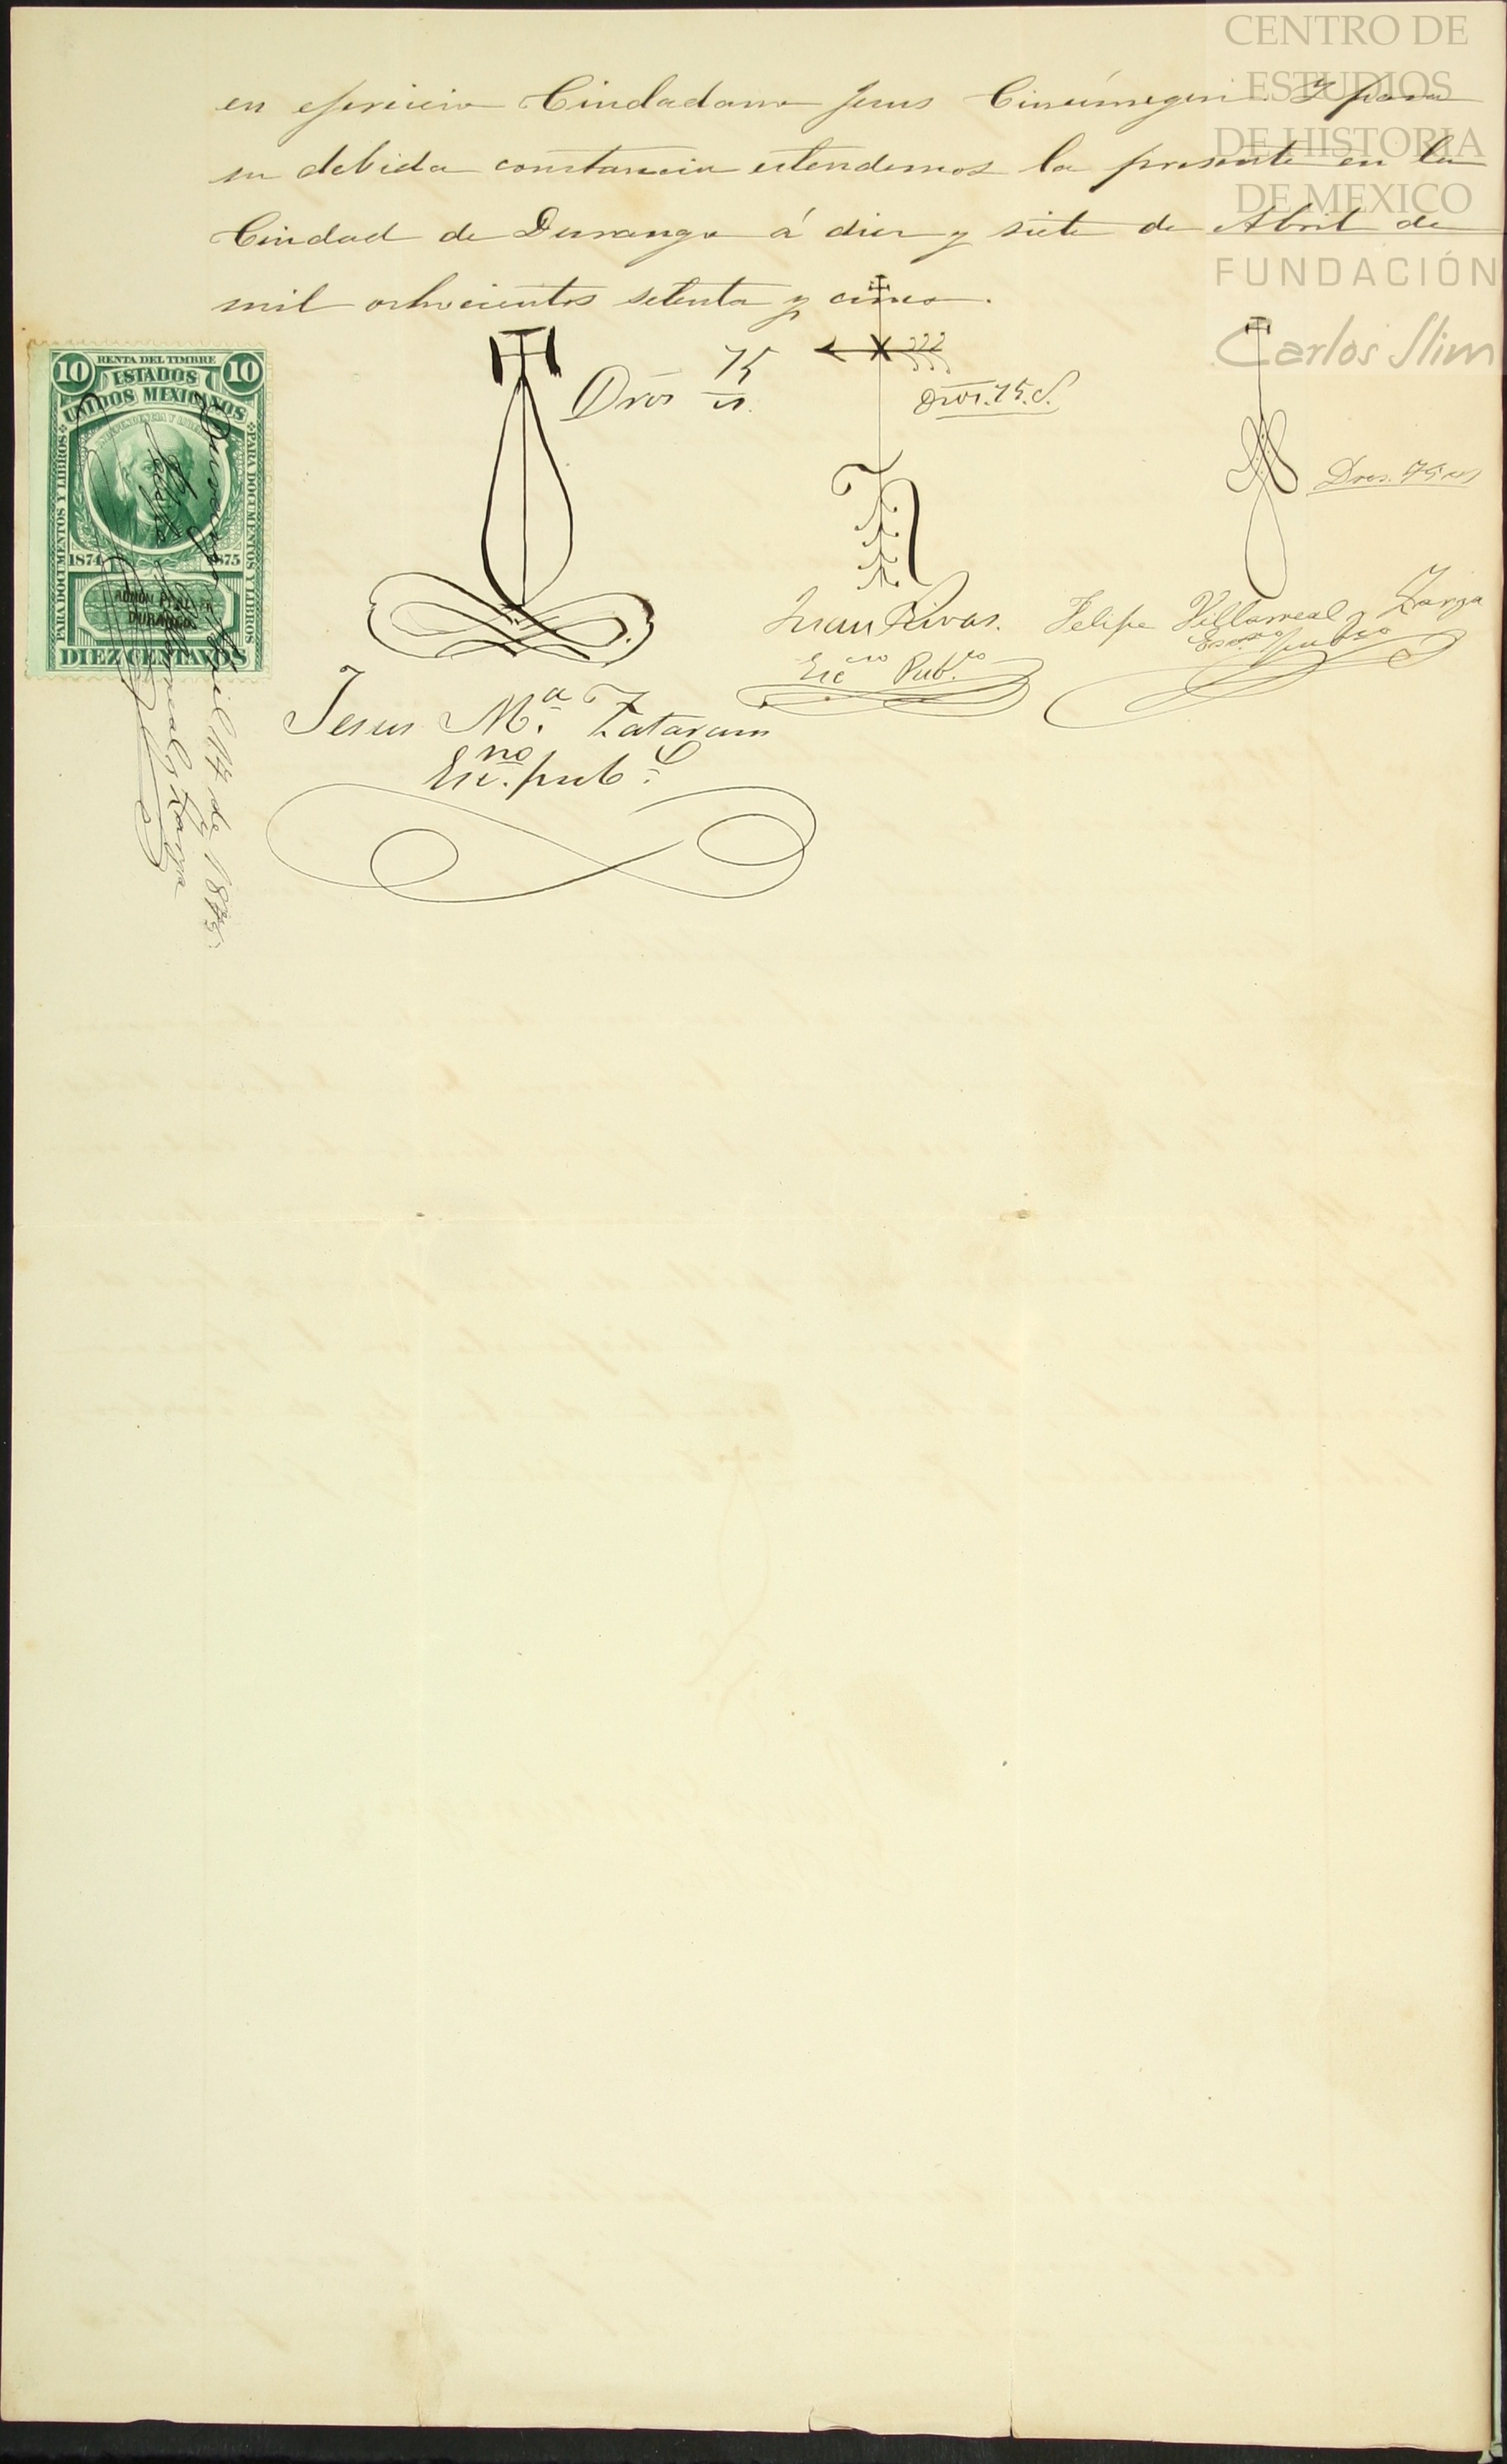 CENTRO DE
ESTUDIOS
DE HISTORIA
DE MEXICO
FUNDACIÓN
Carlos Slim
en ejercicio Ciudadano Jesus Y para
su debida constancia estendemos la presente en la
Ciudad de Durango á diez y siete de Abril de
mil ochocientos setenta y cinco.
10 RENTA DEL TIMBRE 10
ESTADOS
UNIDOS MEXICANOS
INDEPENDENCIA Y
PARA DOCUMENTOS Y LIBROS
PARA DOCUMENTOS Y LIBROS
1874 1875
DURANGO
DIEZ CENTAVOS
Durango Abril 17 de 1875.
Felipe Villarreal y Zarza
Dros 75 cs.
Dros. 75. c.
Dros. 75 cs
Jesus Mª Zataram
Escno. pubco
Juan Rivas.
Escno Pubco
Felipe Villarreal y Zarza
Escno pubco